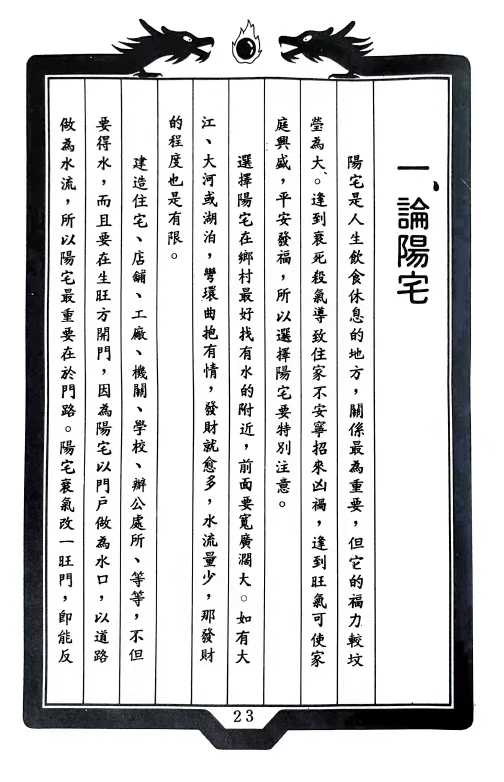 一、論陽宅
陽宅是人生飲食休息的地方，關係最為重要，但它的福力較坟
塋為大。逢到衰死殺氣導致住家不安寧招來凶禍，逢到旺氣可使家
庭興盛，平安發福，所以選擇陽宅要特別注意。
選擇陽宅在鄉村最好找有水的附近，前面要寬廣濶大。如有大
江、大河或湖泊，彎環曲抱有情，發財就愈多，水流量少，那發財
的程度也是有限。
建造住宅、店舖、工廠、機關、學校、辦公處所、等等，不但
要得水，而且要在生旺方開門，因為陽宅以門戶做為水口，以道路
做為水流，所以陽宅最重要在於門路。陽宅衰氣改一旺門，即能反
23